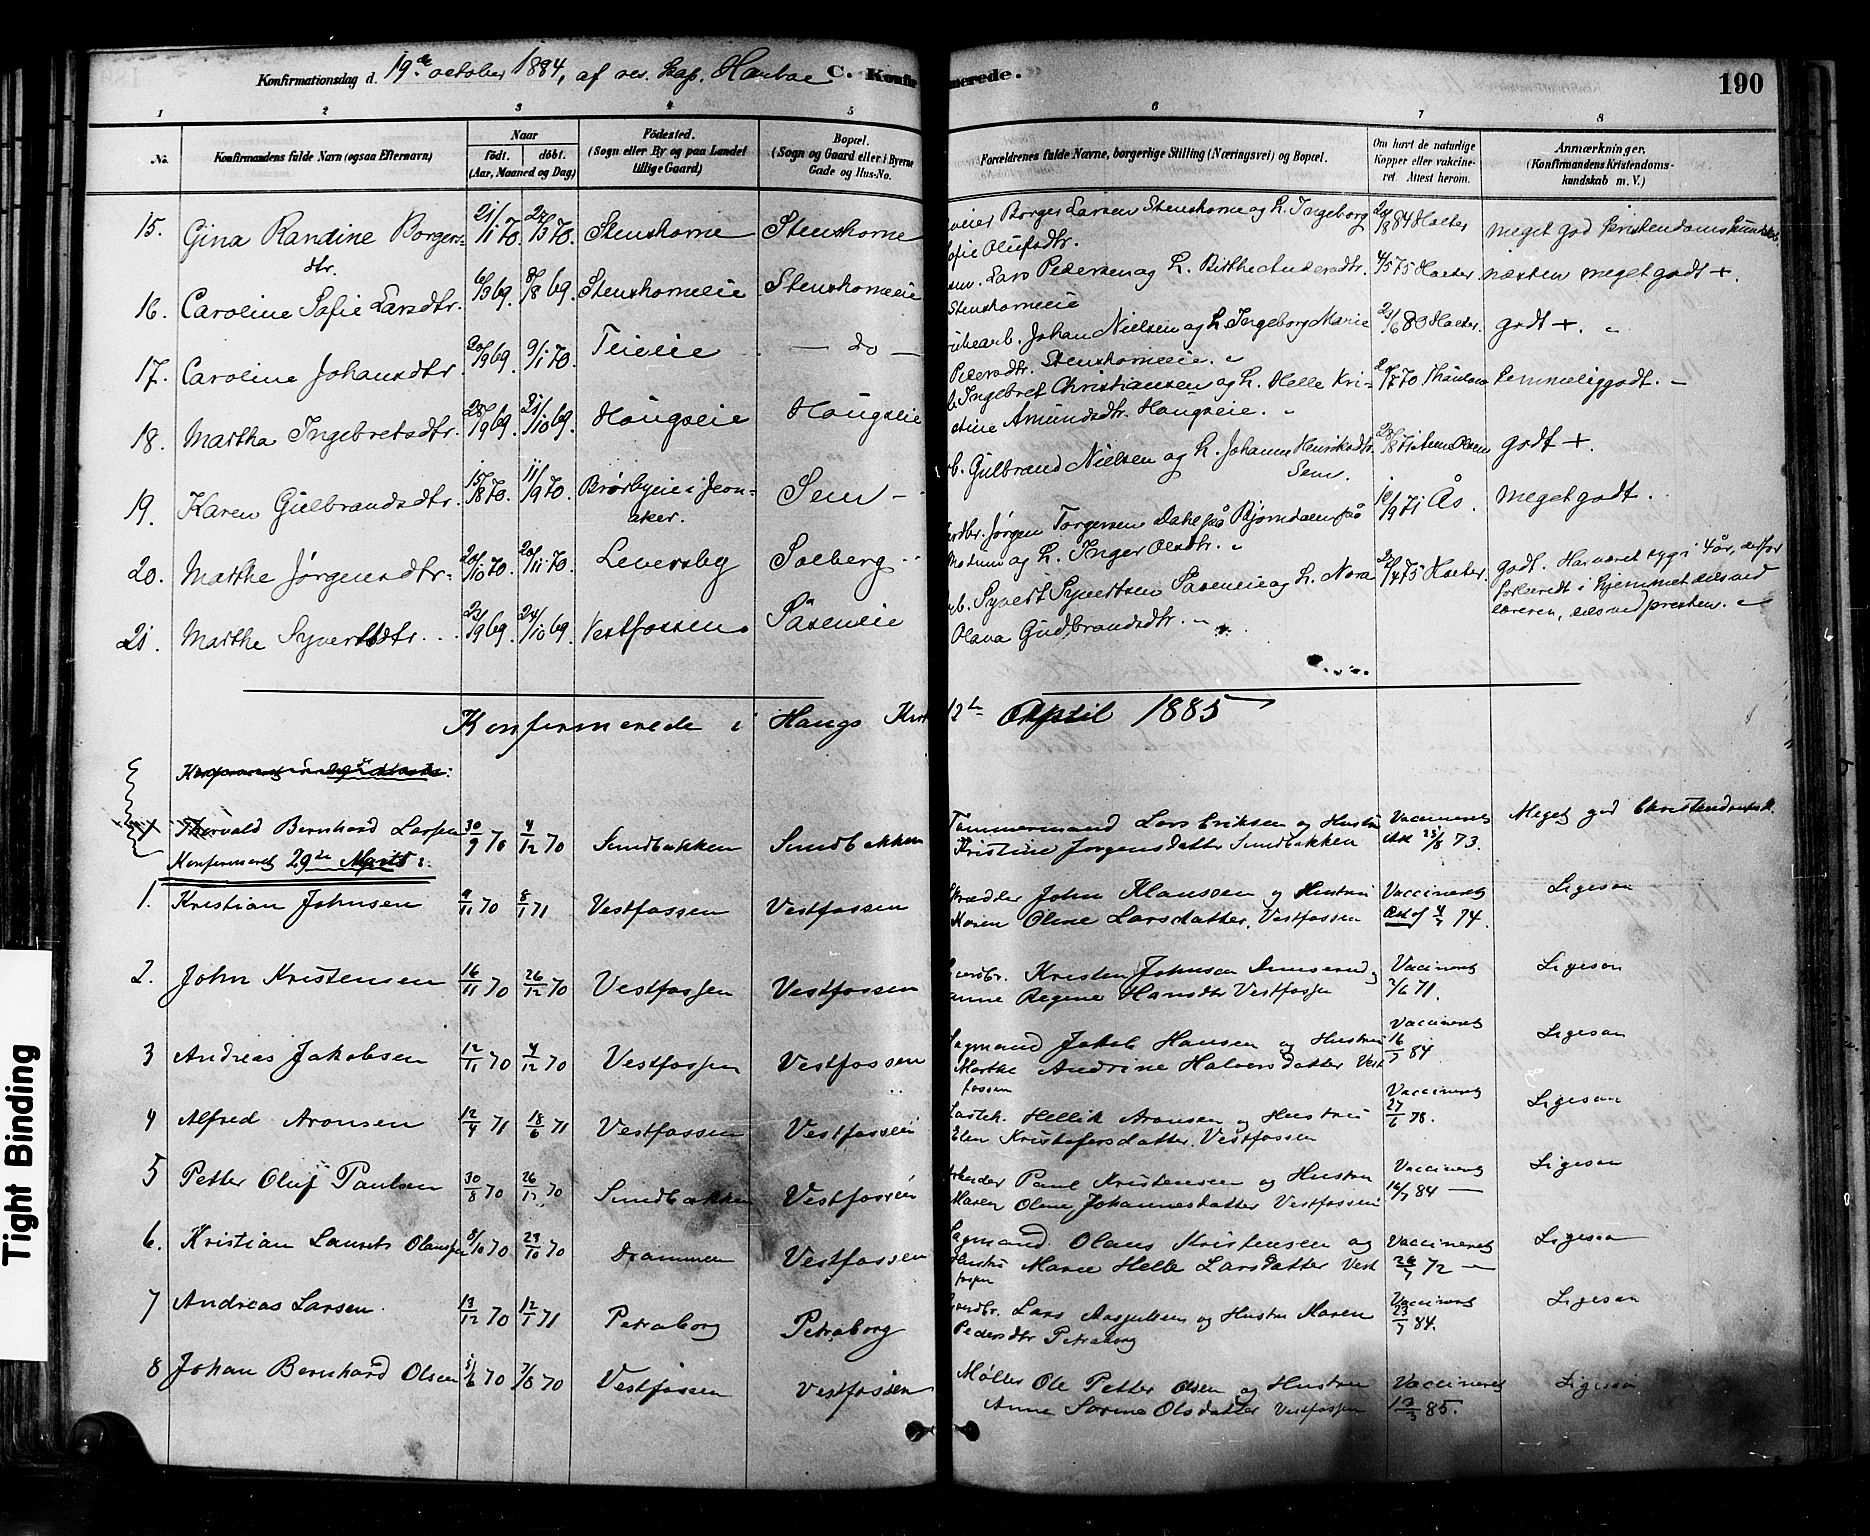 Konfirmationsdag d. 19de october 1884, af res. Kap. C. Konfirmerede. 190
1 2 3 4 5 6 7 8
No. Konfirmandens fulde Navn (ogsaa Efternavn) Naar født. døbt. (Aar, Maaned og Dag) Fødested. (Sogn eller By og paa Landet tillige Gaard) Bopæl. (Sogn og Gaard eller i Byerne Gade og Hus-No. Forældrenes fulde Navne, borgerlige Stilling (Næringsvei) og Bopæl. Om havt de naturlige Kopper eller vakcineret. Attest herom. Anmærkninger. (Konfirmandens Kristendomskundskab m. V.)
15. Gina Randine Borgersdtr. 21/1 70. 27/3 70. Stenshorne Stenshorne Borger Larsen Stenshorne og H. Ingeborg Olufsdtr. 84 Holter meget god Kristendomskundskab
16. Caroline Sofie Larsdtr. 6/3 69. 8/8 69. Stenshorneie Stenshorneie Lars Pedersen og H. Birthe Andersdtr. Stenshorneie 4/5 75 Holter næsten meget godt +.
17. Caroline Johansdtr. 20/9 69. 9/1 70. Teieie — do — Johan Nielsen og H. Ingeborg Marie Pedersdtr. Stenshorneie. 23/6 80 Holter. godt +.
18. Martha Ingebretsdtr. 28/9 69. 21/10 69. Haugseie Haugseie Ingebret Christiansen og H. Helle Kristine Amundsdtr. Haugseie. temmelig godt.
19. Karen Gulbrandsdtr. 15/8 70. 11/9 70. Brørbyeie i Jevnaker. Sem Gulbrand Nielsen og H. Johanne Henriksdtr. Sem. godt +.
20. Marthe Jørgensdtr. 20/10 70. 20/11 70. Leversby Solberg Jørgen Torgersen Dahl på Bjørndalen på Modum og H. Inger Olsdtr. 10/9 71 Ås. Meget godt.
21. Marthe Syvertsdtr. 23/9 69. 24/10 69. Vestfossen Såseneie Syvert Syvertsen Såseneie og H. Nora Olava Gudbrandsdtr. 23/4 75 Holter. godt. Har været syg i 4 år, derfor forberedt i hjemmet dels ved læreren, dels ved presten.
Konfirmerede i Haugs Kirke 12te April 1885
Thorvald Bernhard Larsen 30/9 70 4/12 70 Sundbakken Sundbakken Tømmermand Lars Eriksen og Hustru Kristine Jørgensdatter Sundbakken Vaccineret 25/8 73. Meget god Christendomsk.
Konfirmeret 29de Marts:
1. Kristian Johnsen 9/11 70 8/1 71 Vestfossen Vestfossen Skrædder John Klausen og Hustru Maren Oline Larsdatter. Vestfossen Vaccineret 4/7 74. Ligesaa
2. John Kristensen 16/11 70 26/12 70 Vestfossen Vestfossen Gaardbr. Kristen Johnsen og Anne Regine Hansdtr Vestfossen Vaccineret 7/6 71. Ligesaa
3 Andreas Jakobsen 12/11 70 4/12 70 Vestfossen Vestfossen Sagmand Jakob Hansen og Hustru Marthe Andrine Halvorsdatter Vestfossen Vaccineret 16/7 84. Ligesaa
4 Alfred Aronsen 12/4 71 18/6 71 Vestfossen Vestfossen Hellik Aronsen og Hustru Elen Kristofersdatter. Vestfossen Vaccineret 27/6 78. Ligesaa
5 Petter Oluf Paulsen 30/8 70 26/12 70 Sundbakken Vestfossen Arbeider Paul Kristensen og Hustru Maren Oline Johannesdatter Vestfossen Vaccineret 16/7 84 — Ligesaa
6. Kristian Laurits Olaussen 8/10 70 29/10 70 Drammen Vestfossen Sagmand Olaus Kristensen og Hustru Maren Helle Larsdatter Vestfossen Vaccineret 26/7 72 — Ligesaa
7 Andreas Larsen. 13/12 70 12/1 71 Petraborg Petraborg Gaardbr. Lars og Hustru Maren Pedersdtr Petraborg Vaccineret 23/7 84. Ligesaa
8 Johan Bernhard Olsen 5/6 70 7/8 70 Vestfossen Vestfossen Møller Ole Petter Olsen og Hustru Anne Sørine Olsdatter Vestfossen Vaccineret 13/3 85. Ligesaa
Tight Binding